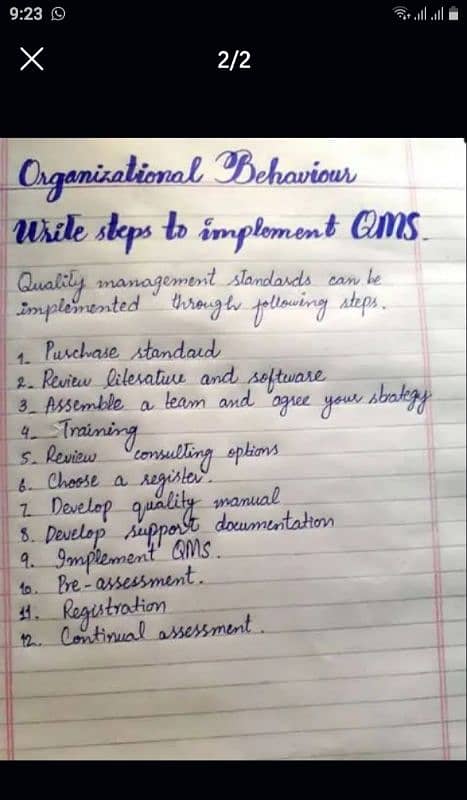 9:23
2/2
Organizational Behaviour
Write steps to implement QMS.
Quality management standards can be
implemented through following steps.
1. Purchase standard
2. Review literature and software
3. Assemble a team and agree your strategy
4. Training
5. Review consulting options
6. Choose a register.
7. Develop quality manual
8. Develop support documentation
9. Implement QMS.
10. Pre-assessment.
11. Registration
12. Continual assessment.